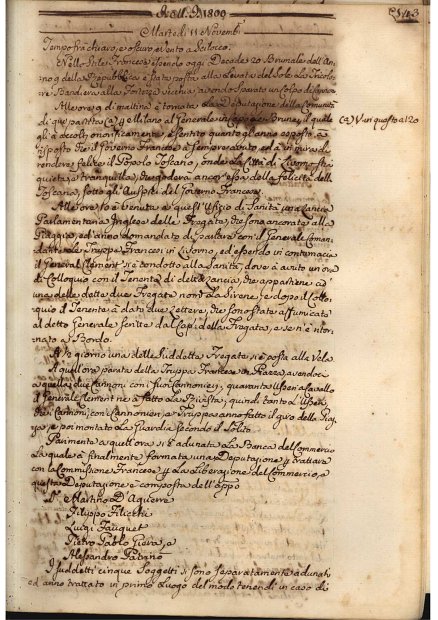 1800
Martedì 11 Novemb.
Tempo fra chiaro, e oscuro vento a Scilocco.
Nello Stile Francese essendo oggi Decade 20 Brumale dell'An-
no 9 della Repubblica è stata posta alla Levata del Sole la Tricolo-
re Bandiera alla Fortezza Vecchia avendo sparato un colpo di Cannone
Alle ore 9 di mattina è tornata la Deputazione della Comunità
di qui partita (a) p Milano al Generale in Capo Brune, il quale
gli à accolti onorificamente, e sentito quanto gli anno esposto, à
risposto che il Governo Francese à sempre avuto ed à in mira di
rendere felice il Popolo Toscano, onde la Città di Livorno stia
quieta, e tranquilla, che goderà ancor essa della felicità della
Toscana, sotto gli Auspici del Governo Francese.
(a) V. in questo a 120
Alle ore 10 è venuta a quest'Ufizio di Sanità una Lancia
Parlamentaria Inglese delle Fregate, che sono ancora alla
Piaggia, ed anno domandato di parlare con il Generale Coman-
dante le Truppe Francesi in Livorno, ed essendo in contumacia
il General Clement si è condotto alla Sanità, dove à avuto un'ora
di Colloquio con il Tenente di detta Lancia, che appartiene ad
una delle dette due Fregate nom. La Sirene, e dopo il Collo-
quio il Tenente à dato due Lettere, che sono state affumicate
al detto Generale scritte da Cap. della Fregata, e se n'è ritor-
nato a Bordo.
A giorno una delle suddette Fregate si è posta alla Vela
A quell'ora parata della Truppa Francese in Piazza avendo
a quella due Cannoni con i suoi Cannonieri, quaranta Usseri a Cavallo
il General Clement ne à fatto la Rivista, quindi tanto l'Usseri
che i Cannoni, con i Cannonieri, e Truppe anno fatto il giro della Piaz-
za, e poi montato la Guardia secondo il Solito
Parimente a quell'ora si è adunata la Banca del Commercio
la quale à finalmente formata una Deputazione p trattare
con la Commissione Francese p la liberazione del Commercio, e
questa Deputazione è composta dell'app.
Martino D'Aguerre
Filippo Filicchi
Luigi Fauquet
Pietro Pablo Giera, e
Alessandro Patrino
I suddetti cinque Soggetti si sono separatamente adunati
ed anno trattato in primo luogo del modo tenendi in caso di